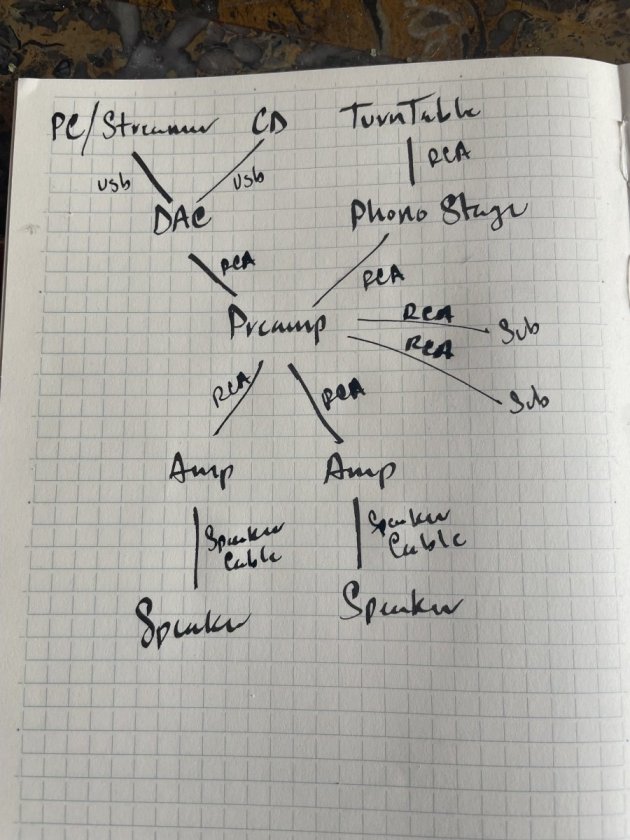 PC/Streamer CD TurnTable
usb usb RCA
DAC Phono Stage
RCA RCA
Preamp RCA Sub
RCA Sub
RCA RCA
Amp Amp
Speaker Speaker
Cable Cable
Speaker Speaker